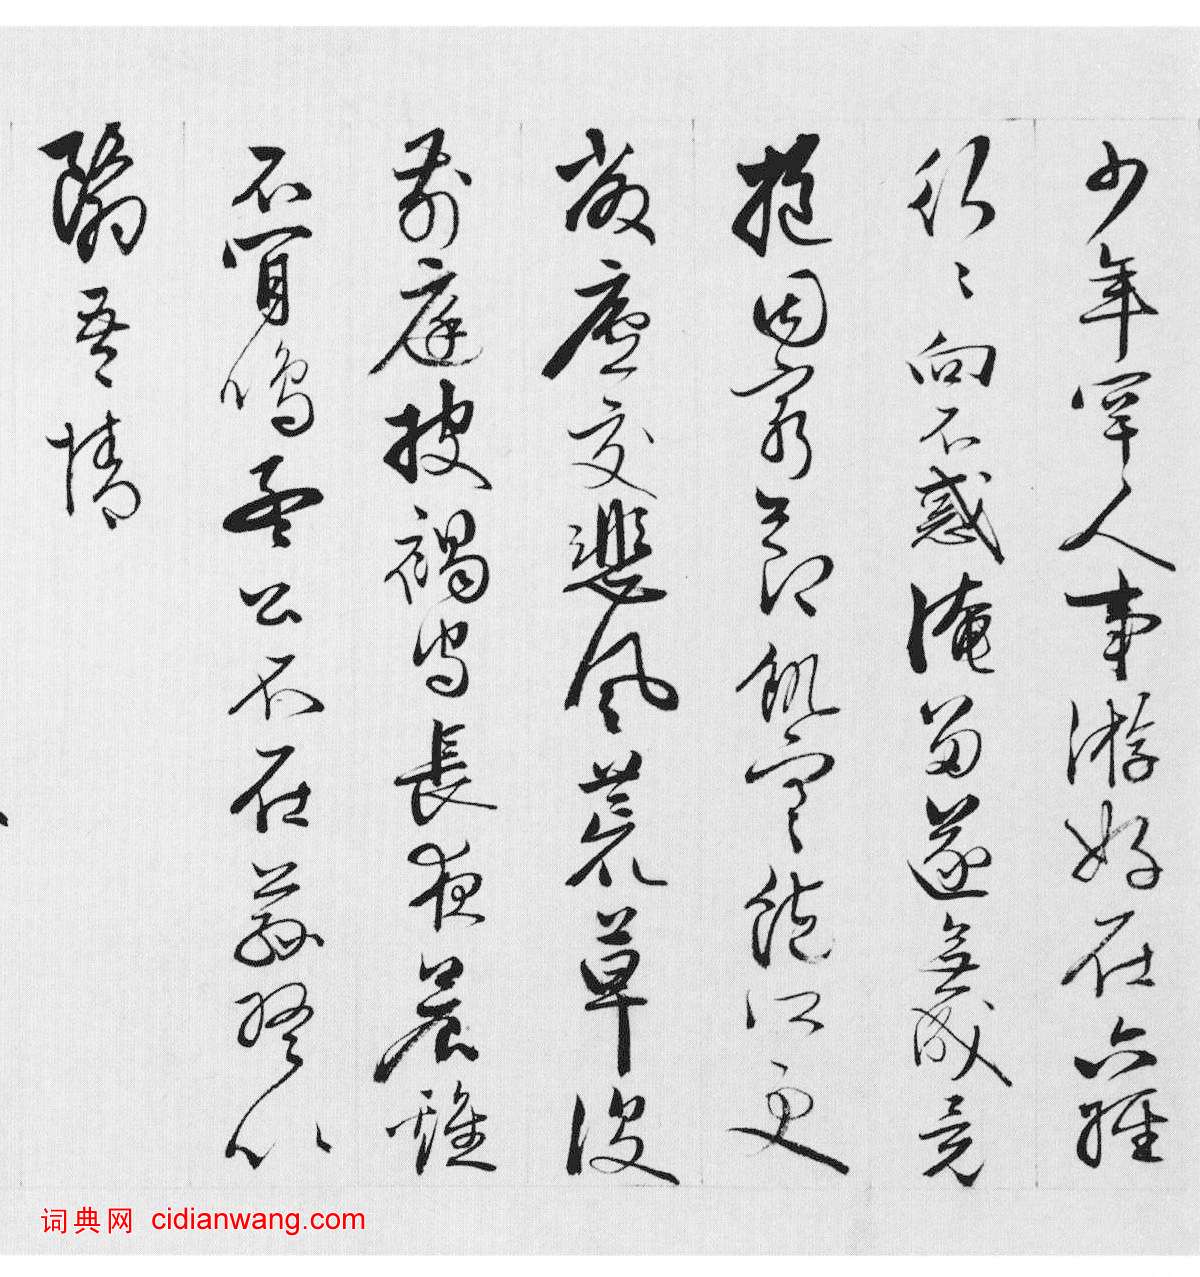 少年罕人事游好在六經
行〻向不惑淹留遂無成竟
抱固窮節飢寒飽所更
敝廬交悲風荒草沒
前庭披褐守長夜晨雞
不肯鳴孟公不在茲終以
翳吾情
词典网 cidianwang.com